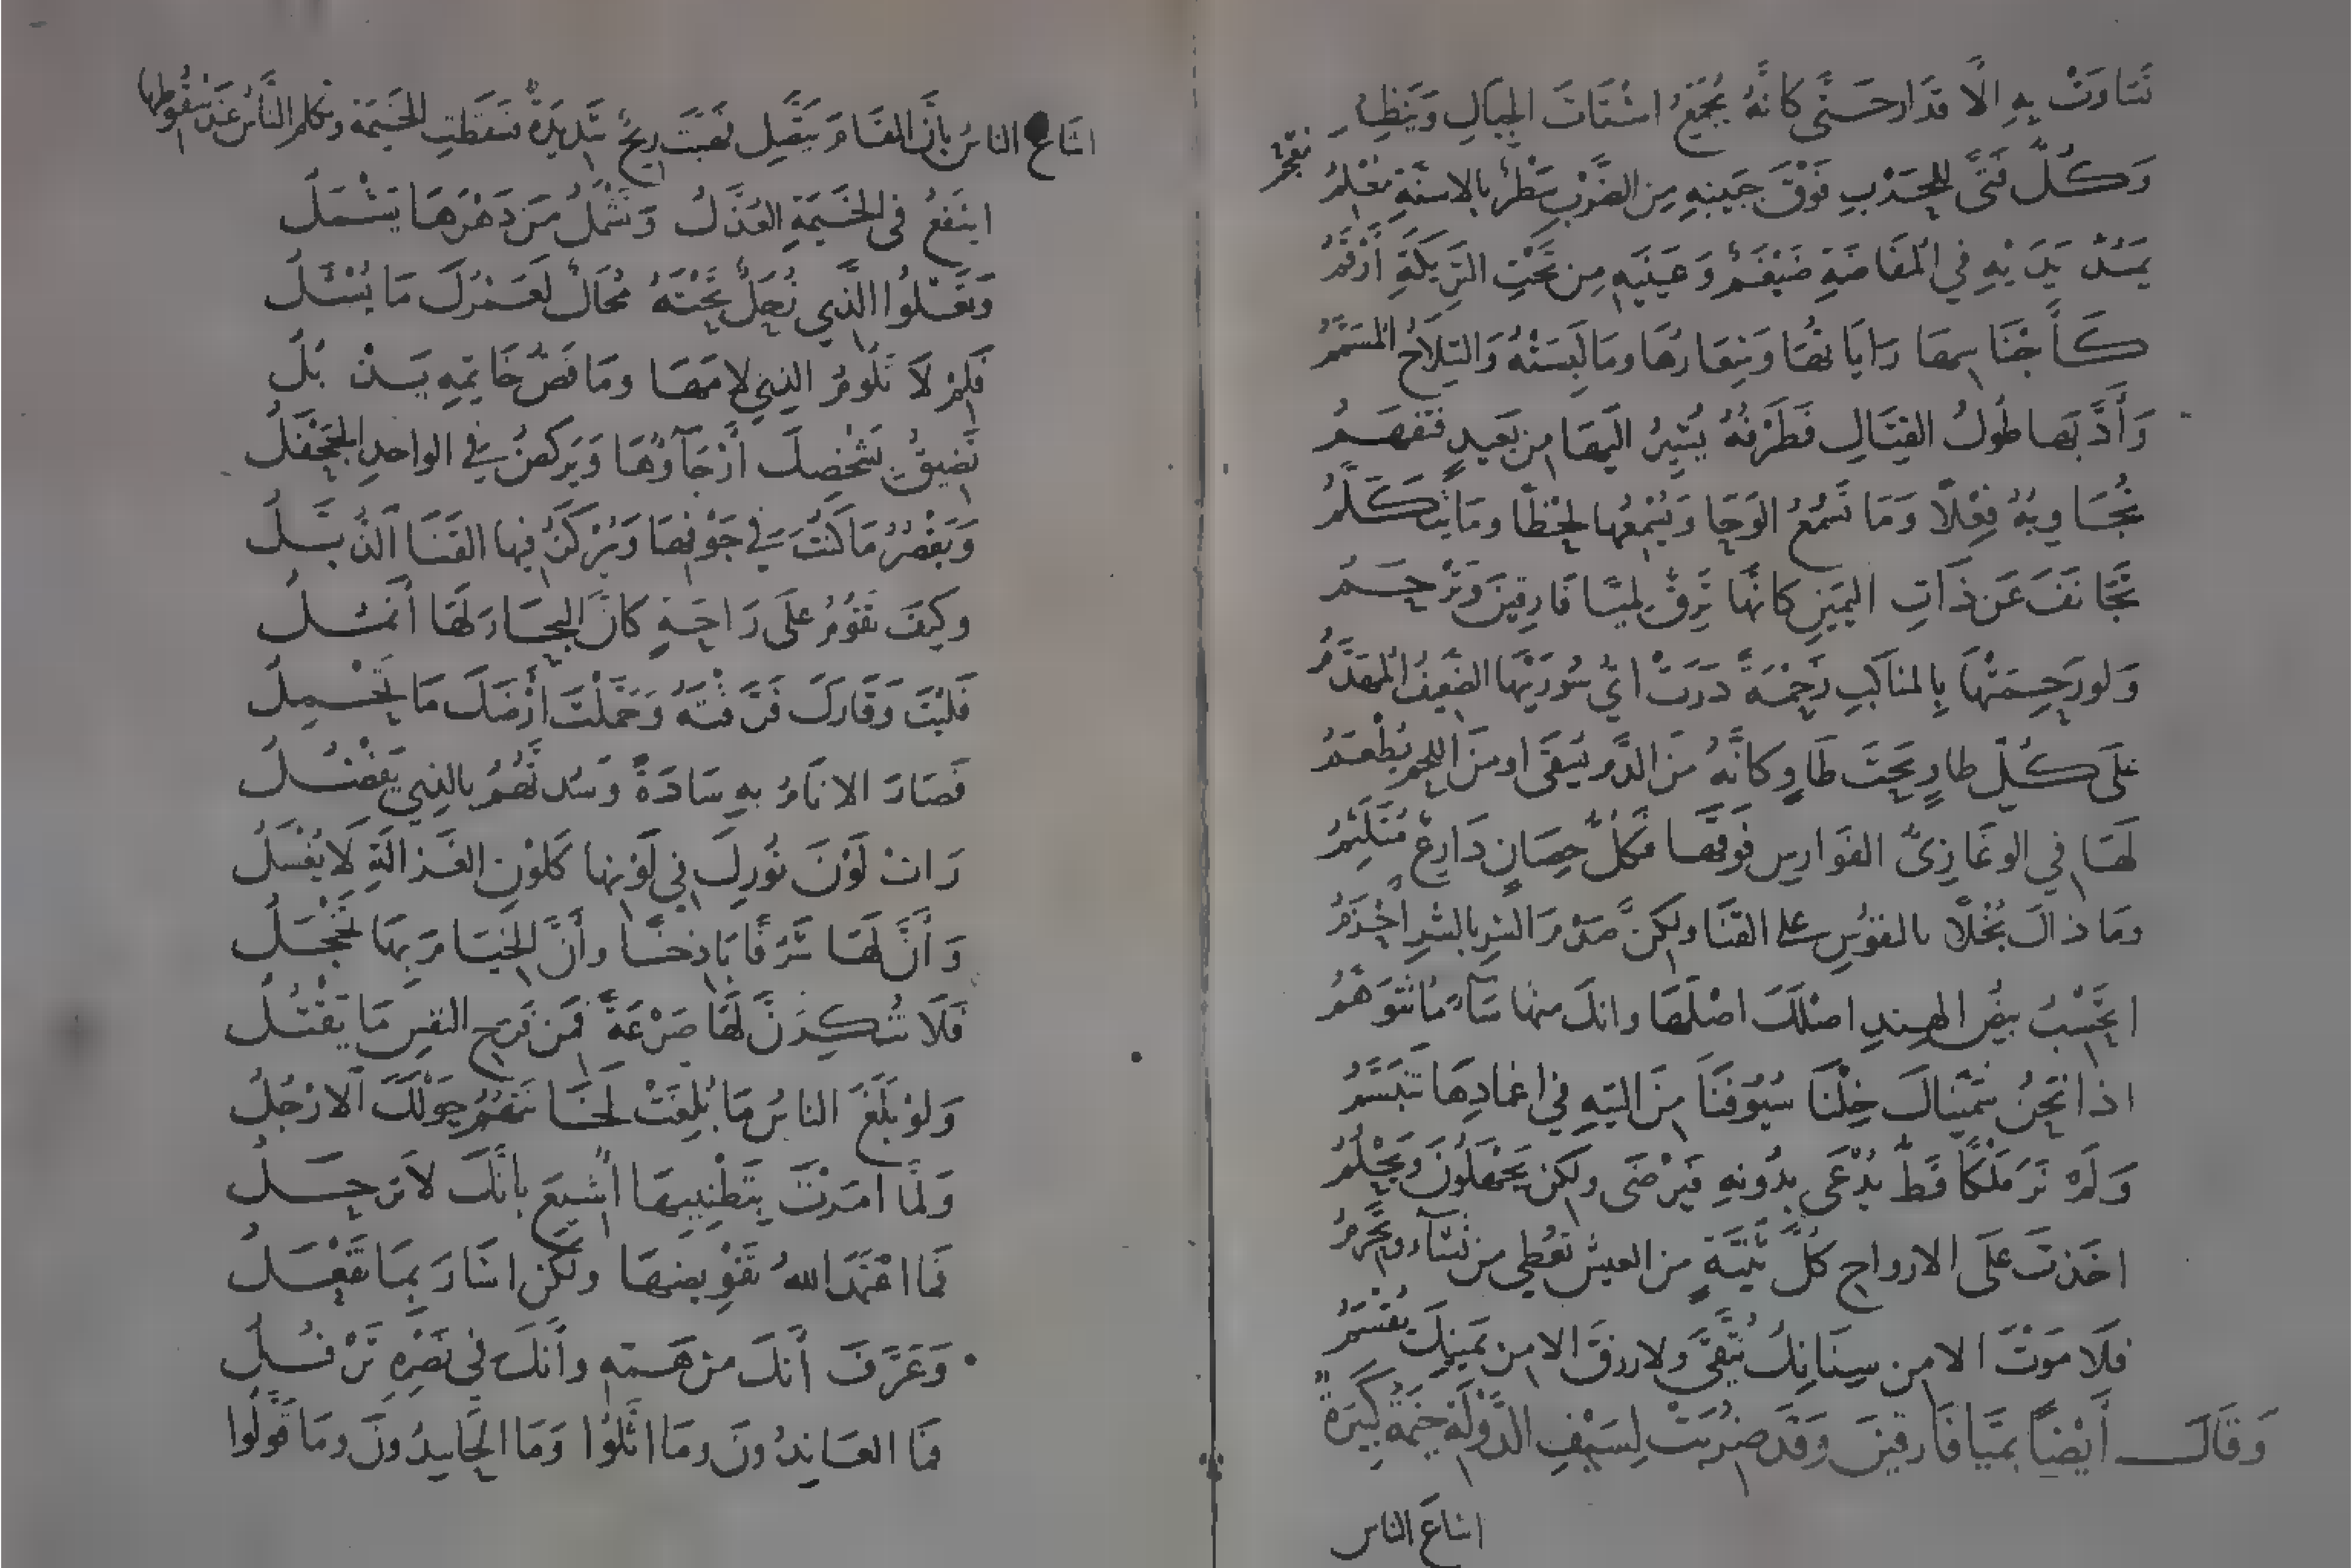 تَسَاوَتْ بِهِ الأقدَار حَتّى كَانَّهُ يُجَمِّعُ اشْتَاتَ الجِبَالِ وَيَنْظِمُ
وَكُلُّ فَتًى للحَرْبِ فَوْقَ جَبِينِهِ مِنَ الضَّرْبِ سَطْرٌ بالاسنّةِ مُعْجَمُ
يَمُدُّ يَدَيْهِ فِي المُفَاضَةِ ضَيْغَمٌ وَعَيْنَيهِ مِن تَحْتِ التَّرِيكَةِ أَرْقَمُ
كَأَجْنَاسِهَا رَايَاتُهَا وَشِعَارُهَا ومَا لَبِسَتْهُ وَالسِّلاحُ المُسَمَّمُ
وَأَدَّبَهَا طُولُ القِتَالِ فَطَرْفُهُ يُشِيرُ الَيْهَا مِن بَعِيدٍ فَتَفهَمُ
تُجَاوِبُهُ فِعْلاً وَمَا تَسْمَعُ الوَحَا وَيُسْمِعُها لَحْظًا ومَا يَتَكَلَّمُ
تَجَانَفُ عَن ذَاتِ اليَمِينِ كَانَّهَا تَرِقُّ لِمَيَّا فَارِقِينَ وَتَرْحَمُ
وَلَو زَحَمَتْهَا بِالمنَاكِبِ زَحْمَةً دَرَتْ ايُّ سُورَيْهَا الضَّعِيفُ المُهَدَّمُ
عَلَى كُلِّ طاوٍ تَحتَ طَاوٍ كَانَّهُ مِنَ الدَّمِ يُسْقَى اومِنَ اللحمِ يُطْعَمُ
لَهَا فِي الوغَا زِيُّ الفَوَارِسِ فَوقَهَا فكلُّ حِصَانٍ دَارِعٌ مُتَلَثِّمُ
ومَا ذاكَ بُخْلاً بالنفوُسِ على القَنَا ولكنَّ صَدْمَ الشرِ بالشرِ احْزَمُ
اتَحْسِبُ بيضُ الهندِ اصْلَكَ اصْلَهَا وانكَ منهَا سَآءَ مَا تَتَوَهَّمُ
اذا نَحْنُ سَمَّيْنَاكَ خِلْنَا سُيُوفَنَا مِنَ التيهِ فِي اغمادِهَا تَتَبَسَّمُ
وَلَمْ نَرَ مَلْكًا قَطُّ يُدْعَى بِدُونِهِ فَيَرْضَى ولكن يَجْهَلُونَ وَيَحْلُمُ
اخَذتَ عَلَى الارواحِ كُلَّ ثَنِيَّةٍ مِنَ العيشِ تعُطِي من تَشَآءُ وتَحْرِمُ
فَلاَ مَوْتَ الا من سِنَانِكَ يُتَّقَى ولا رزقَ الا من يَمِينِكَ يُقْسَمُ
وَقَالَ أَيْضاً بمَيَّا فَارقينَ وَقَد ضُرِبَتْ لِسَيْفِ الدَّوْلَةِ خَيْمَةٌ كَبِيرَةٌ
اشاعَ الناس
اشَاعَ الناسُ بِانَّ المقَامَ يتَّصِل فَهَبَّتَ رِيحٌ شَدِيدَةٌ فَسَقَطَتِ الخَيْمَة وتكلم النَّاسُ عِنْدَ سُقُوطِهَا
اينَفَعُ فى الخَيْمَةِ العُذَّلُ وَتَشْمَلُ مَن دَهْرَهَا يَشْمَلُ
وَتَعْلُوا الَّذي زُحَلٌ تَحْتَهُ مُحَالٌ لَعَمْرُكَ مَا تُسْئَلُ
فَلِمْ لاَ تَلُومُ الذِي لاَمَهَا ومَا فَصُّ خَاتَمِهِ يَذْبُلُ
تَضِيقُ بشَخْصِكَ أَرْجَآؤُهَا وَيَركضُ في الواحدِ الجَحْفَلُ
وَتَقْصُرُ مَا كُنْتَ في جَوْفِهَا وَتُرْكَزُ فيها القَنَا الذُّبَّلُ
وكَيفَ تَقُومُ عَلَى رَاحَةٍ كَانَّ البِحَارَ لَهَا أَنْمُلُ
فَلَيْتَ وَقَارَكَ فَرَّقْتَهُ وَحَمَّلْتَ أَرْضَكَ مَا تَحْمِلُ
فَصَارَ الانَامُ بهِ سَادَةً وَسُدْتَهُمُ بالذِي يَفْضُلُ
رَاتْ لَوْنَ نُورِكَ فِي لَوْنِها كَلَوْنِ الغَزالَةِ لاَ يُغْسَلُ
وَأَنَّ لَهَا شَرَفًا بَاذِخًا وأَنَّ الخِيَامَ بِهَا تَخْجَلُ
فَلاَ تُنْكِرَنَّ لَهَا صَرْعَةً فَمِن فَرَحِ النفسِ مَا يَقْتُلُ
وَلَوْ بَلَغَ الناسُ مَا بُلِّغَتْ لَخَانَتْهُمُ حَوْلَكَ الارْجُلُ
وَلَمّا امَرْتَ بِتَطْنِيبِهَا اُشِيعَ بانَّكَ لاَ تَرْحَلُ
فَمَا اعْتَمَدَ اللهُ تَقْوِيضَهَا ولكن اشَارَ بِمَا تَفْعَلُ
وَعَرَّفَ أَنكَ مِن هَمِّهِ وأَنكَ فِي نَصْرِهِ تَرْفُلُ
فمَا العَانِدُونَ ومَا اثَّلُوا وَمَا الحَاسِدُونَ ومَا قَوَّلُوا